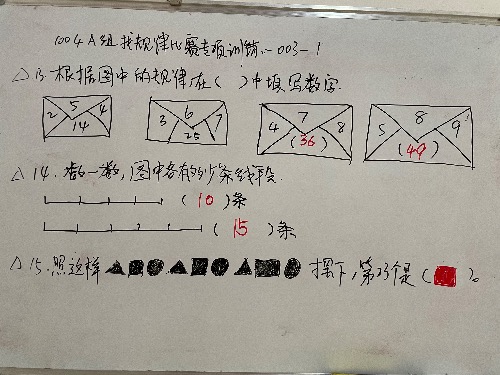 1004A组找规律比赛专项训练-003-1
△13.根据图中的规律在( )中填写数字.
2 5 4 14
3 6 7 25
4 7 8 (36)
5 8 9 (49)
△14.数一数,图中各有多少条线段.
(10)条
(15)条
△15.照这样▲■●▲■●▲■●摆下,第23个是(■)。